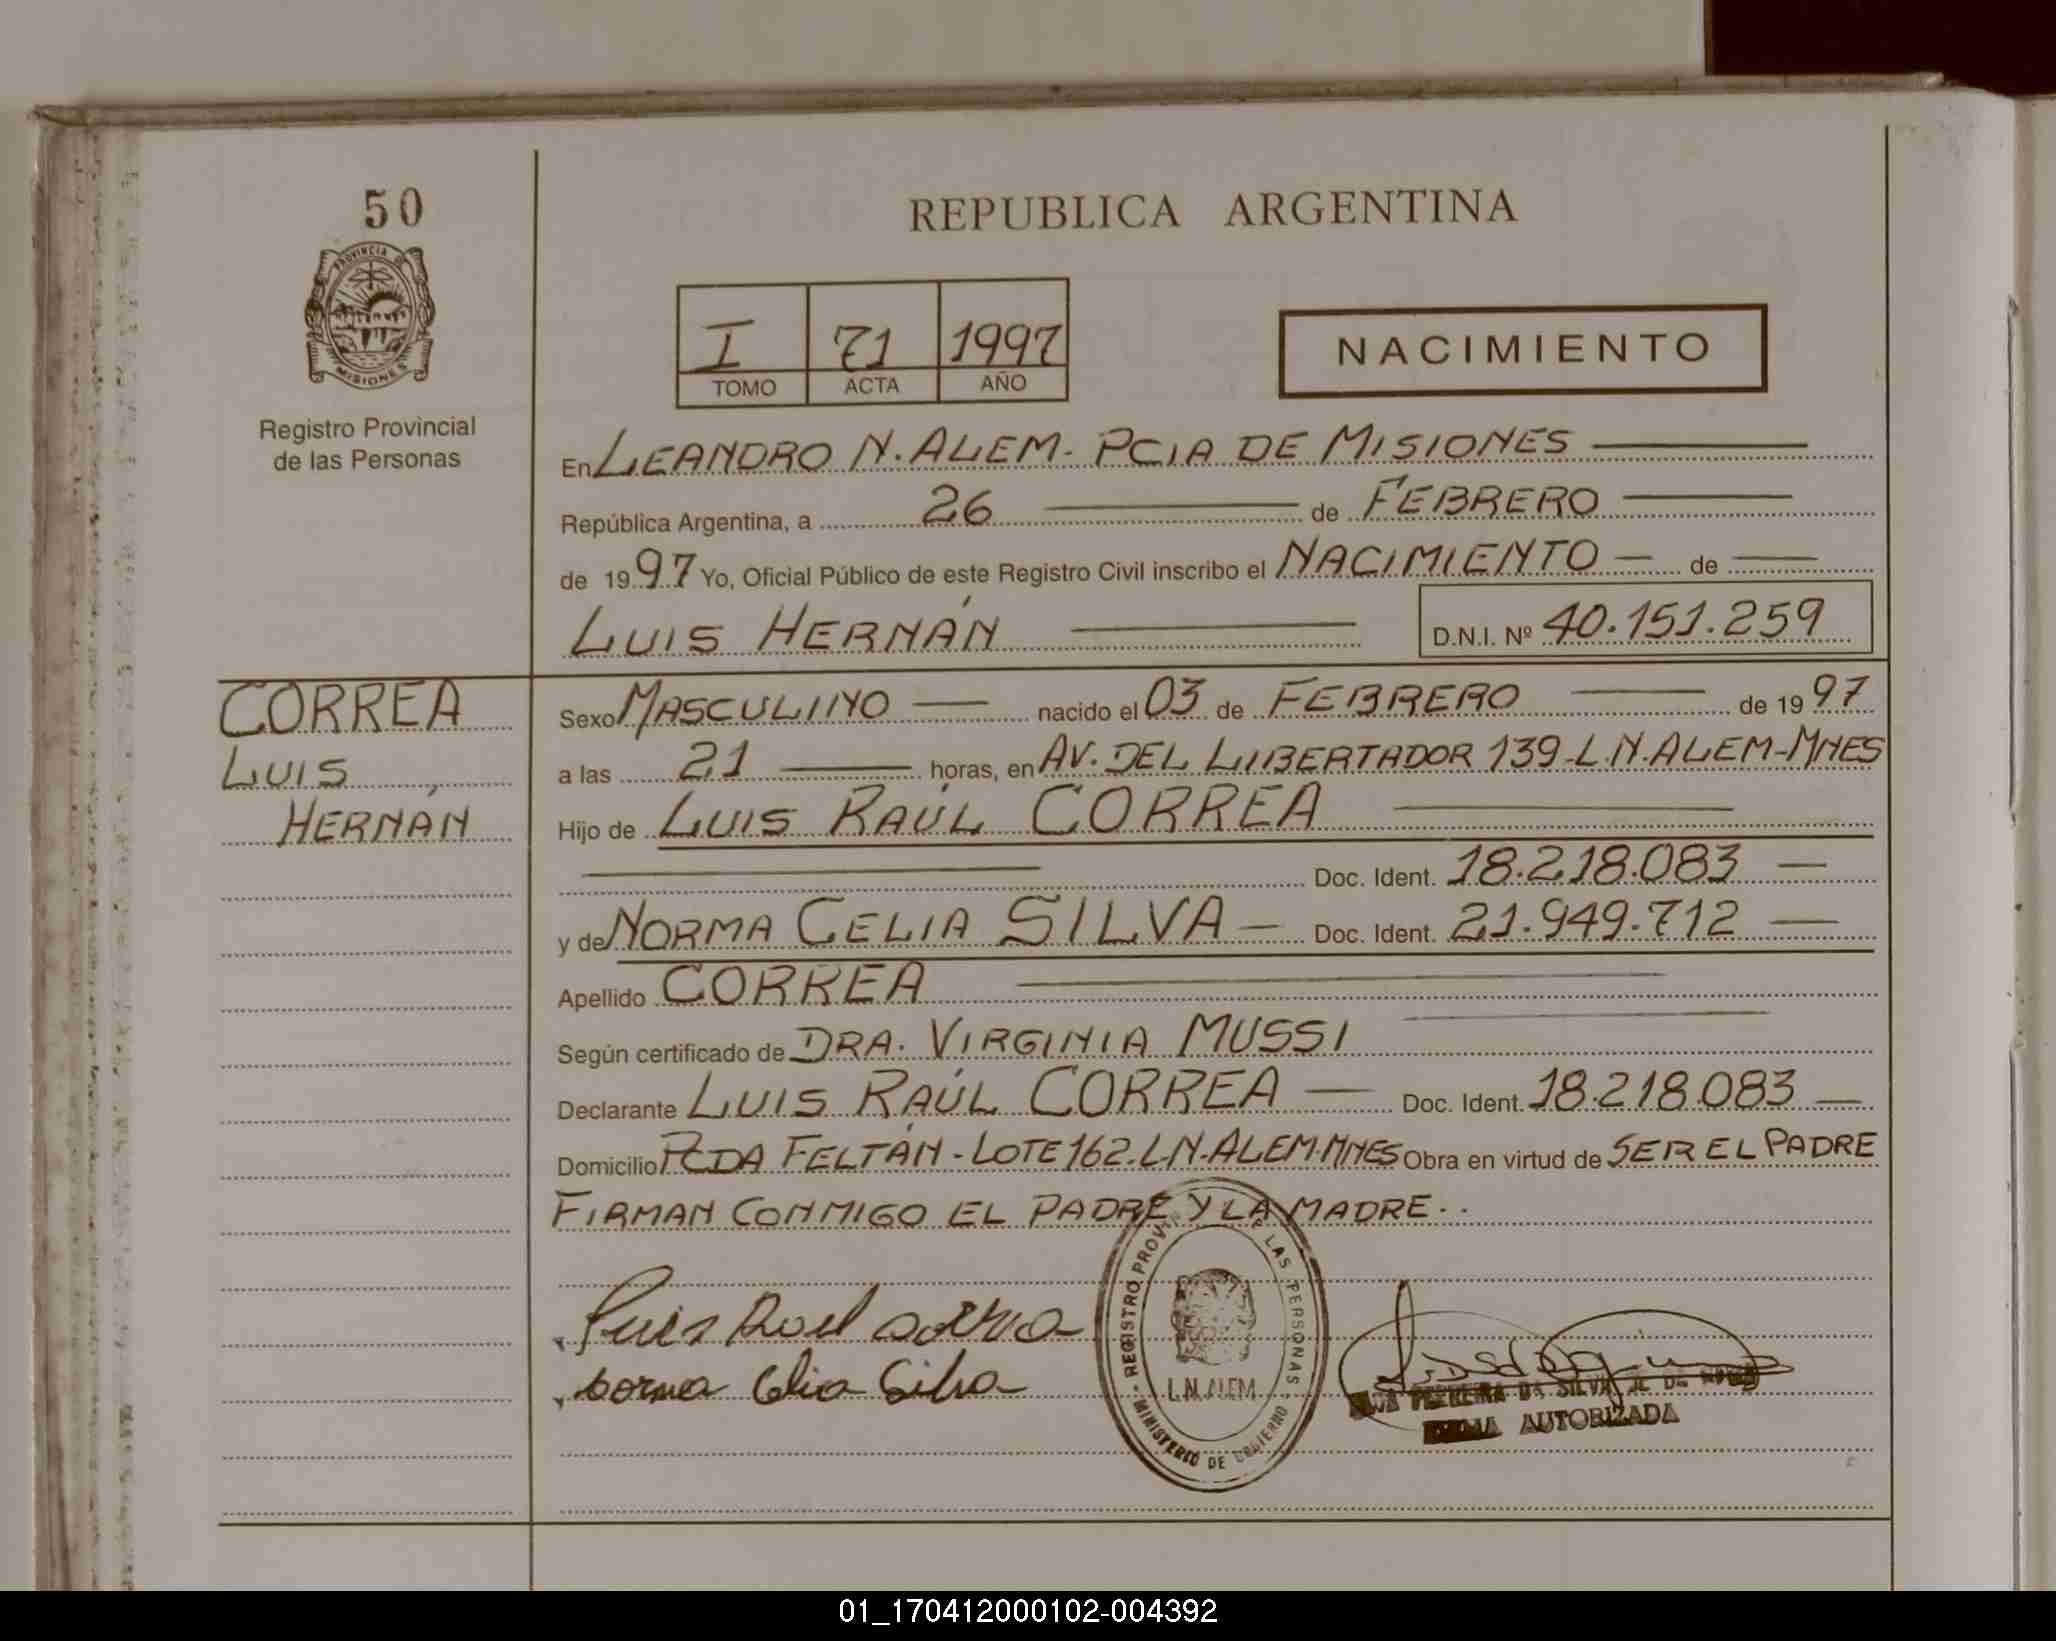 50
PROVINCIA D
MISIONES
Registro Provincial
de las Personas
REPUBLICA ARGENTINA
I 71 1997
TOMO ACTA AÑO
NACIMIENTO
En LEANDRO N. ALEM - PCIA DE MISIONES
República Argentina, a 26 de FEBRERO
de 1997 Yo, Oficial Público de este Registro Civil inscribo el NACIMIENTO de
LUIS HERNÁN
D.N.I. Nº 40.151.259
CORREA
LUIS
HERNÁN
Sexo MASCULINO nacido el 03 de FEBRERO de 1997
a las 21 horas, en AV. DEL LIBERTADOR 139-L.N.ALEM-MNES
Hijo de LUIS RAÚL CORREA
Doc. Ident. 18.218.083
y de NORMA CELIA SILVA Doc. Ident. 21.949.712
Apellido CORREA
Según certificado de DRA. VIRGINIA MUSSI
Declarante LUIS RAÚL CORREA Doc. Ident. 18.218.083
Domicilio PCDA FELTÁN - LOTE 162. L.N. ALEM. MNES Obra en virtud de SER EL PADRE
FIRMAN CONMIGO EL PADRE Y LA MADRE..
Luis Raul correa
Norma Celia Silva
REGISTRO PROV LAS PERSONAS
L.N. ALEM
MINISTERIO DE GOBIERNO
PEREIRA DA SILVA
FIRMA AUTORIZADA
01_170412000102-004392